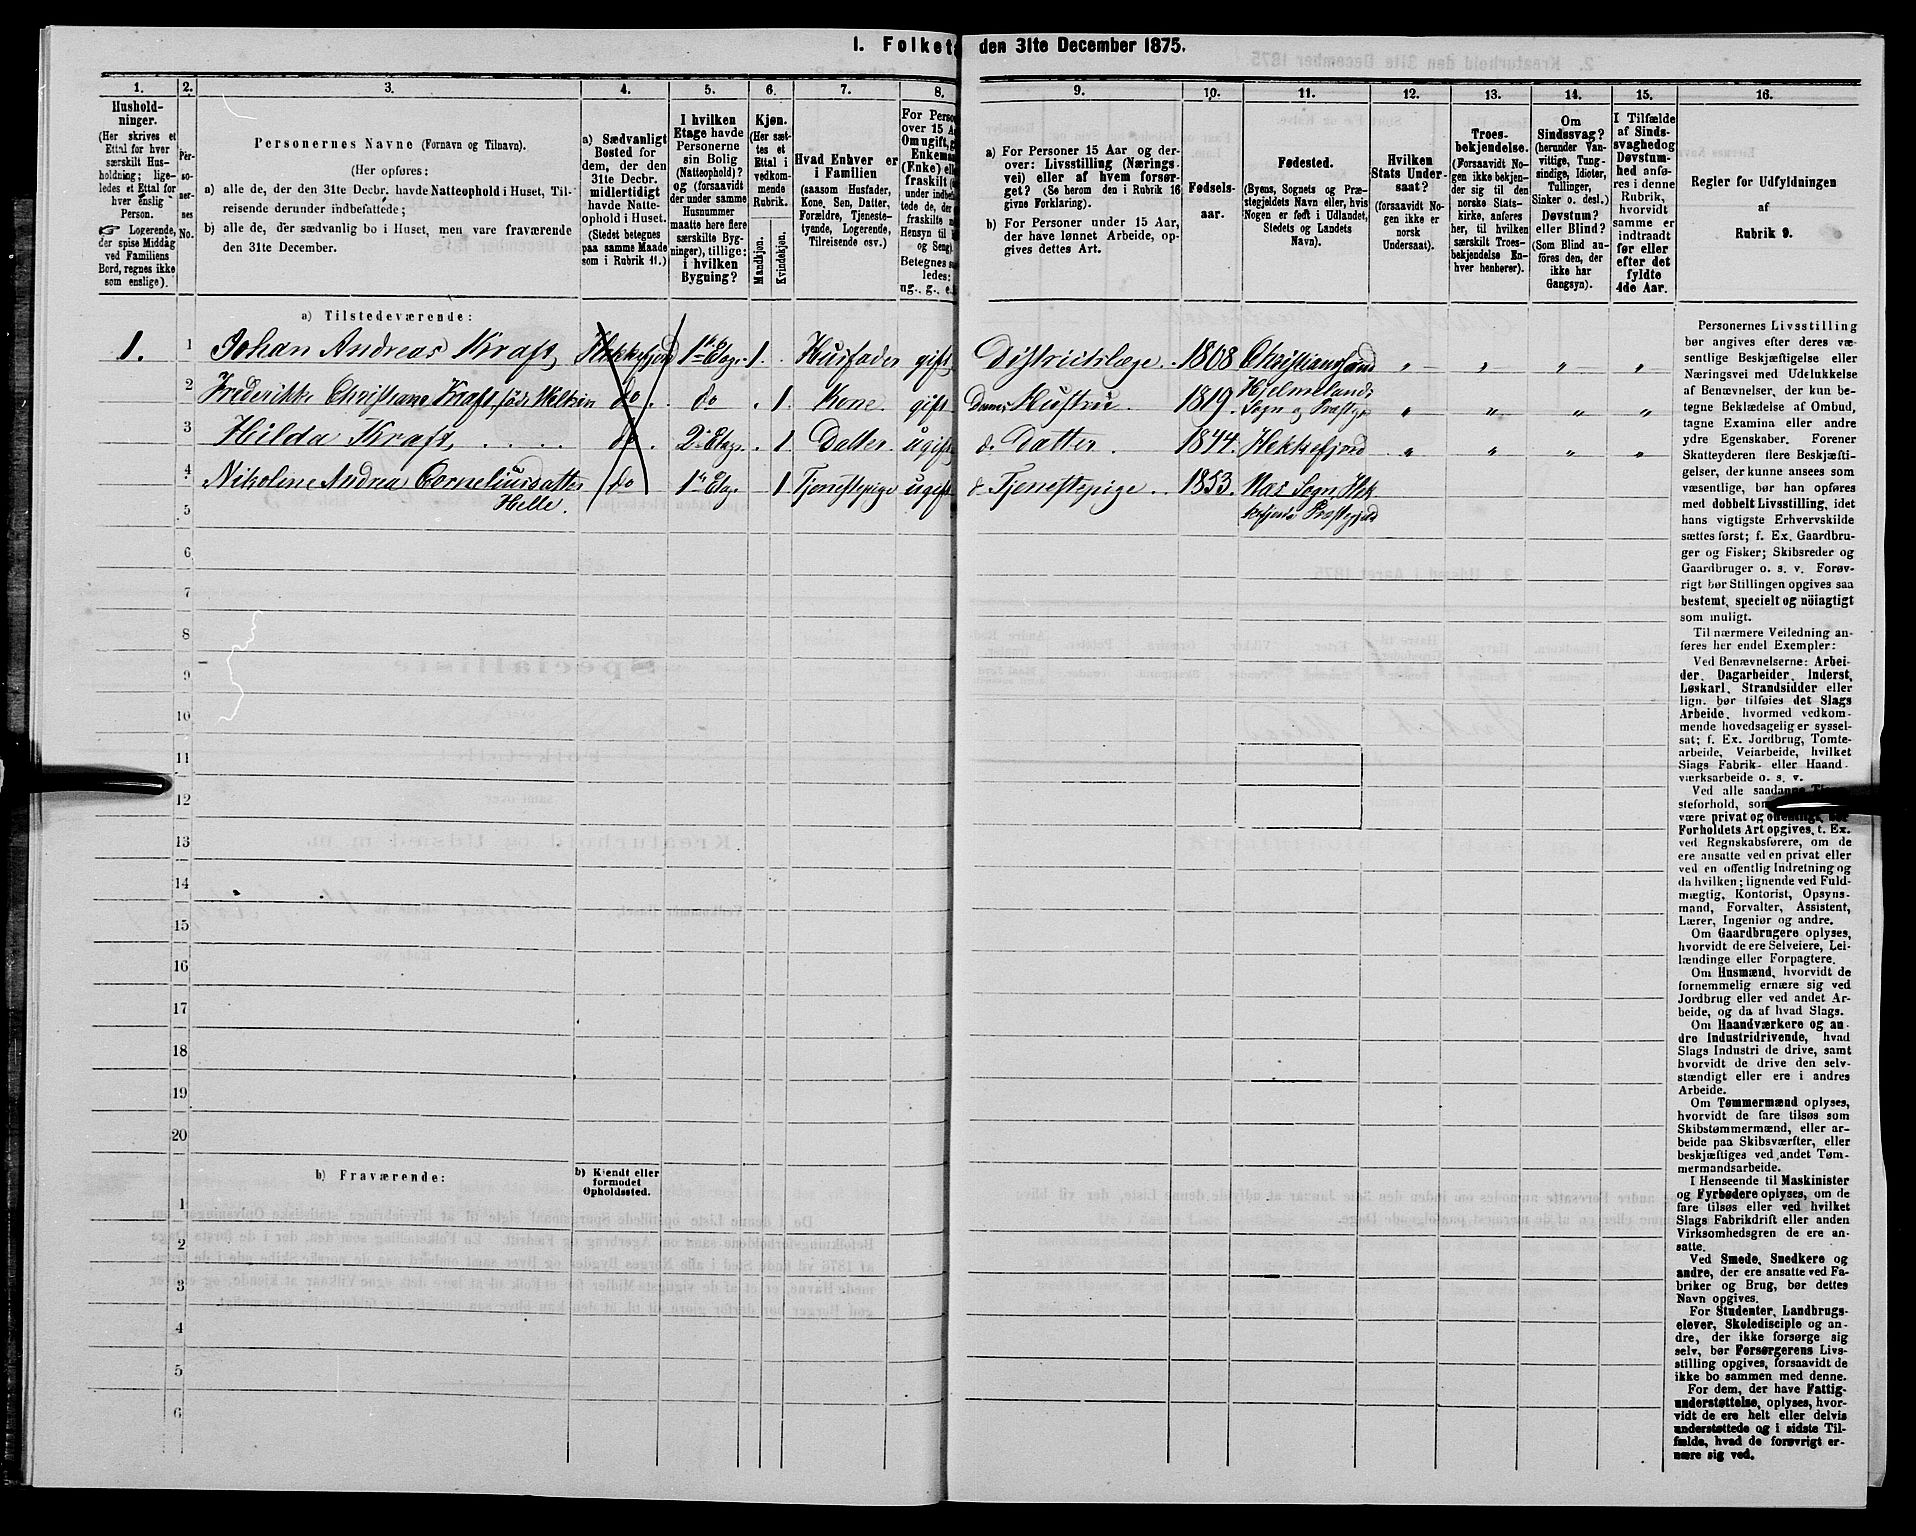 I. Folket den 31te December 1875.
1. 2. 3. 4. 5. 6. 7. 8. 9. 10. 11. 12. 13. 14. 15. 16.
Hushold-
ninger.
(Her skrives et
Ettal for hver
særskilt Hus-
holdning; lige-
ledes et Ettal for
hver enslig
Person.
☞ Logerende,
der spise Middag
ved Familiens
Bord, regnes ikke
som enslige).
Per-
so-
ner-
nes
No.
Personernes Navne (Fornavn og Tilnavn).
(Her opføres:
a) alle de, der den 31te Decbr. havde Natteophold i Huset, Til-
reisende derunder indbefattede;
b) alle de, der sædvanlig bo i Huset, men vare fraværende
den 31te December.
a) Sædvanligt
Bosted for
dem, der den
31te Decbr.
midlertidigt
havde Natte-
ophold i Huset.
(Stedet betegnes
paa samme Maade
som i Rubrik 11.)
I hvilken
Etage havde
Personerne
sin Bolig
(Natteophold)?
og (forsaavidt
der under samme
Husnummer
maatte høre flere
særskilte Byg-
ninger), tillige:
i hvilken
Bygning?
Kjøn.
(Her sæt-
tes et
Ettal i
vedkom-
mende
Rubrik.
Mandkjøn.
Kvindekjøn.
Hvad Enhver er
i Familien
(saasom Husfader,
Kone, Søn, Datter,
Forældre, Tjeneste-
tyende, Logerende,
Tilreisende osv.)
For Perso
over 15 Aa
Om ugift, g
Enkema
(Enke) ell
fraskilt (
under indbe
tede de, der
fraskilte
Hensyn til
og Seng)
Betegnes
ledes:
ug., g., e.
a) For Personer 15 Aar og der-
over: Livsstilling (Nærings-
vei) eller af hvem forsør-
get? (Se herom den i Rubrik 16
givne Forklaring).
b) For Personer under 15 Aar,
der have lønnet Arbeide, op-
gives dettes Art.
Fødsels-
aar.
Fødested.
(Byens, Sognets og Præ-
stegjeldets Navn eller, hvis
Nogen er født i Udlandet,
Stedets og Landets
Navn).
Hvilken
Stats Under-
saat?
(forsaavidt No-
gen ikke er
norsk
Undersaat).
Troes-
bekjendelse.
(Forsaavidt No-
gen ikke bekjen-
der sig til den
norske Stats-
kirke, anføres
her, til hvilken
særskilt Troes-
bekjendelse En-
hver henhører).
Om
Sindssvag?
(herunder Van-
vittige, Tung-
sindige, Idioter,
Tullinger,
Sinker o. desl.)
Døvstum?
eller Blind?
(Som Blind an-
føres den, der
ikke har
Gangsyn).
I Tilfælde
af Sinds-
svaghed og
Døvstum-
hed anfø-
res i denne
Rubrik,
hvorvidt
samme er
indtraadt
før eller
efter det
fyldte
4de Aar.
Regler for Udfyldningen
af
Rubrik 9.
a) Tilstedeværende:
1. 1 Johan Andreas Kraft, Flekkefjord 1ste Etage 1. Husfader gift Districtslæge. 1808 Christianssand " " " "
2 Frederikke Christiane Kraft, født Weltzin do. do 1. Kone. gift Dennes Hustru. 1819. Hjelmelands
Sogn og Præstegj " " " "
3 Hilda Kraft, do. 2. Etage 1 Datter. ugift d. Datter. 1844. Flekkefjord " " " "
4 Nikoline Andrea Corneliusdatter
Helle. do 1ste Etag. 1 Tjenestepige ugift d Tjenestepige. 1853. Næs Sogn, Flek-
kefjords Præstegjeld
5
6
7
8
9
10
11
12
13
14
15
16
17
18
19
20
b) Fraværende:
b) Kjendt eller
formodet
Opholdssted.
1
2
3
4
5
6
Personernes Livsstilling
bør angives efter deres væ-
sentlige Beskjæftigelse eller
Næringsvei med Udelukkelse
af Benævnelser, der kun be-
tegne Beklædelse af Ombud,
tagne Examina eller andre
ydre Egenskaber. Forener
Skatteyderen flere Beskjæfti-
gelser, der kunne ansees som
væsentlige, bør han opføres
med dobbelt Livsstilling, idet
hans vigtigste Erhvervskilde
sættes først; f. Ex. Gaardbru-
ger og Fisker; Skibsreder og
Gaardbruger o. s. v. Forøv-
rigt bør Stillingen opgives saa
bestemt, specielt og nöiagtigt
som muligt.
Til nærmere Veiledning an-
føres her endel Exempler:
Ved Benævnelserne: Arbei-
der, Dagarbeider, Inderst,
Løskarl, Strandsidder eller
lign. bør tilføies det Slags
Arbeide, hvormed vedkom-
mende hovedsagelig er syssel-
sat; f. Ex. Jordbrug, Tomte-
arbeide, Veiarbeide, hvilket
Slags Fabrik- eller Haand-
værksarbeide o. s. v.
Ved alle saadanne
steforhold, som
være privat og offentligt, bør
Forholdets Art opgives, t. Ex.
ved Regnskabsførere, om de
ere ansatte ved en privat eller
ved en offentlig Indretning og
da hvilken; lignende ved Fuld-
mægtig, Kontorist, Opsyns-
mand, Forvalter, Assistent,
Lærer, Ingeniør og andre.
Om Gaardbrugere oplyses,
hvorvidt de ere Selveiere, Lei-
lændinge eller Forpagtere.
Om Husmænd, hvorvidt de
fornemmelig ernære sig ved
Jordbrug eller ved andet Ar-
beide, og da af hvad Slags.
Om Haandværkere og an-
dre Industridrivende, hvad
Slags Industri de drive, samt
hvorvidt de drive den selv-
stændigt eller ere i andres
Arbeide.
Om Tømmermænd oplyses,
hvorvidt de fare tilsøs som
Skibstømmermænd, eller ar-
beide paa Skibsværfter, eller
beskjæftiges ved andet Tøm-
mermandsarbeide.
I Henseende til Maskinister
og Fyrbødere oplyses, om de
fare tilsøs eller ved hvilket
Slags Fabrikdrift eller anden
Virksomhedsgren de ere an-
satte.
Ved Smede, Snedkere og
andre, der ere ansatte ved Fa-
briker og Brug, bør dettes
Navn opgives.
For Studenter, Landbrugs-
elever, Skoledisciple og an-
dre, der ikke forsørge sig
selv, bør Forsørgerens Livs-
stilling opgives, forsaavidt de
ikke bo sammen med denne.
For dem, der have Fattig-
understøttelse, oplyses, hvor-
vidt de ere helt eller delvis
understøttede og i sidste Til-
fælde, hvad de forøvrigt er-
nære sig ved.